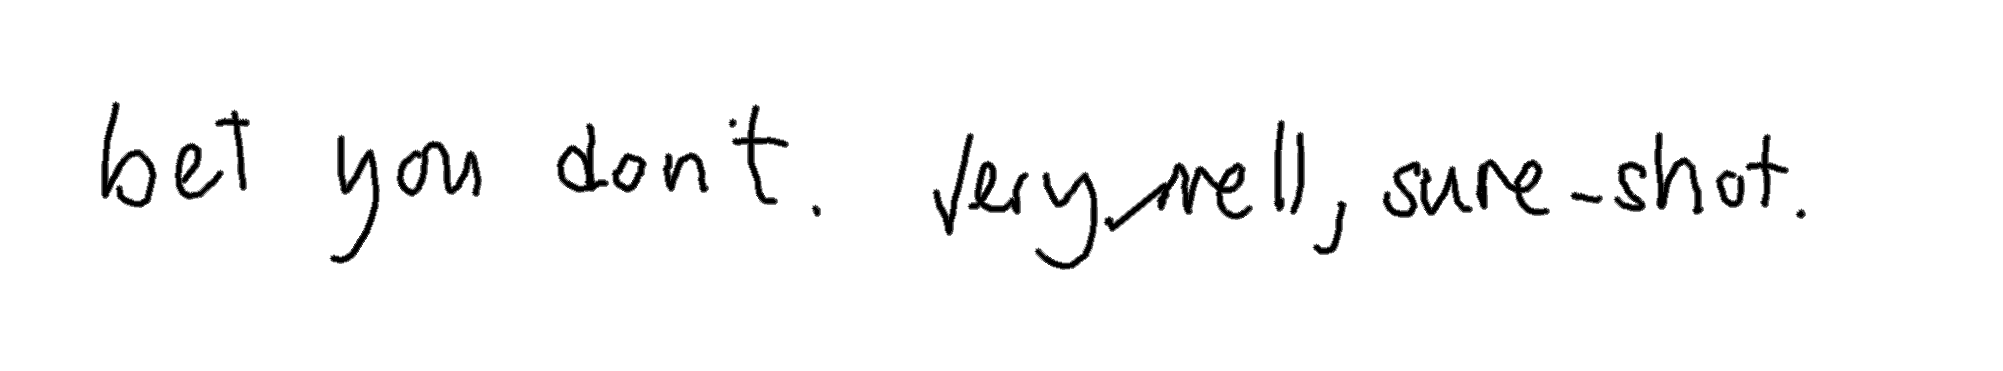 bet you don't. Very well, sure-shot.